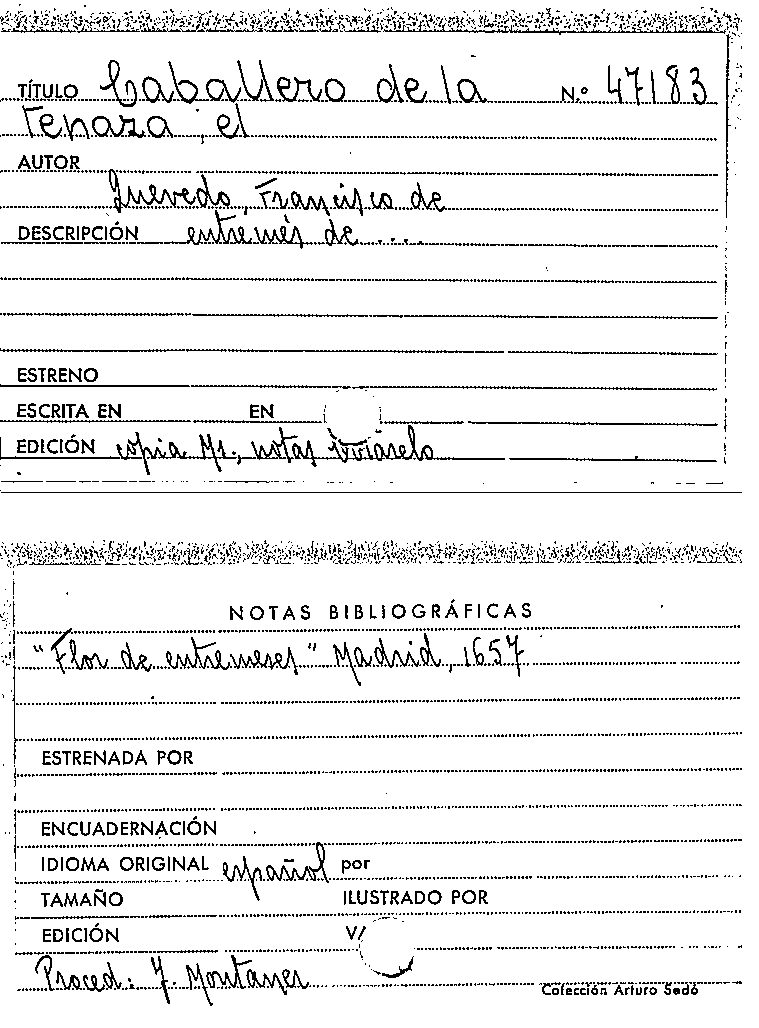 TÍTULO Caballero de la N.º 47183
Tenaza, el
AUTOR
Quevedo, Francisco de
DESCRIPCIÓN entremés de ....
ESTRENO
ESCRITA EN EN
EDICIÓN copia Ms., notas
NOTAS BIBLIOGRÁFICAS
"Flor de entremeses" Madrid, 1657
ESTRENADA POR
ENCUADERNACIÓN
IDIOMA ORIGINAL español por
TAMAÑO ILUSTRADO POR
EDICIÓN V/
Proced: J. Montaner
Colección Arturo Sedó